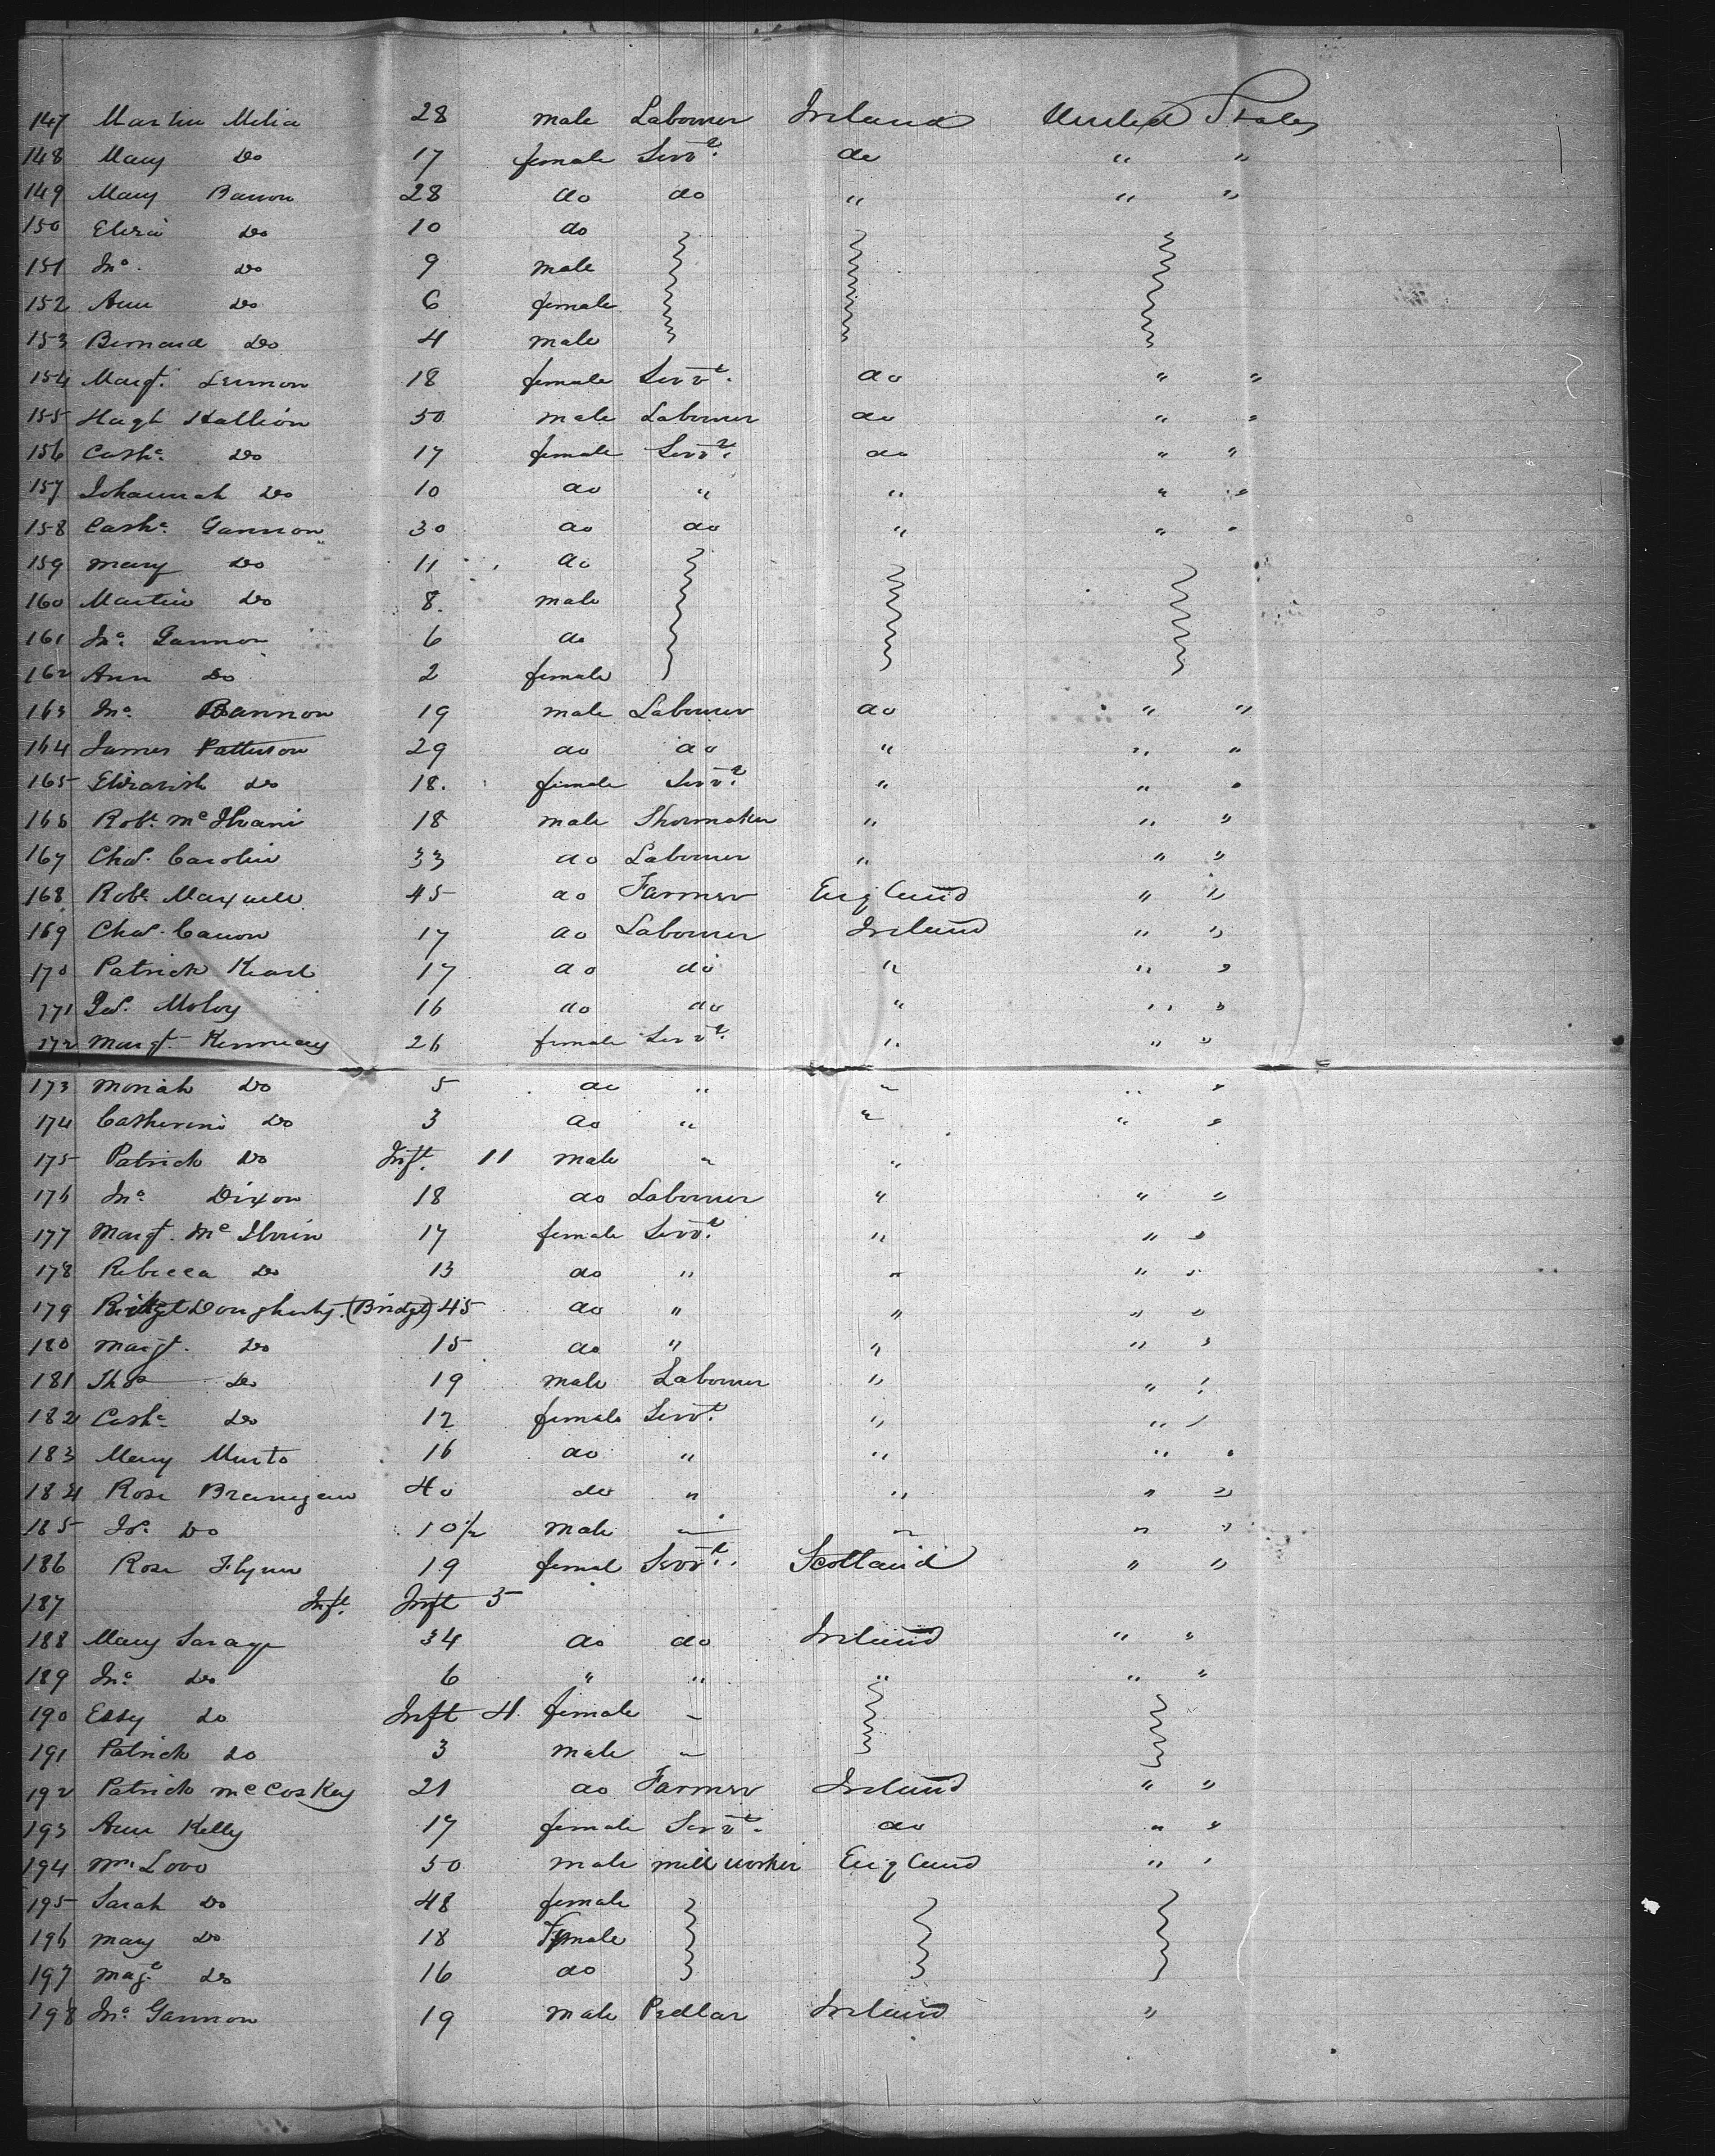 147 Martin Melia 28 male Labourer Ireland United States
148 Mary Do 17 female Servt. do " "
149 Mary Bannon 28 do do " " "
150 Eliza Do 10 do
151 Jno. Do 9 male
152 Ann Do 6 female
153 Bernard Do 4 male
154 Margt. Lennon 18 female Servt. do " "
155 Hugh Hallion 50 male Labourer do " "
156 Cathe. Do 17 female Servt. do " "
157 Johannah Do 10 do " " " "
158 Cathe. Gannon 30 do do " " "
159 Mary Do 11 do
160 Martin Do 8. male
161 Jno. Gannon 6 do
162 Ann Do 2 female
163 Jno. Bannon 19 male Labourer do " "
164 James Patterson 29 do do " " "
165 Elizabith Do 18. female Servt. " " "
166 Robt. Mc Ilvani 18 male Shoemaker " " "
167 Chas. Carolin 33 do Labourer " " "
168 Robt. Maxwell 45 do Farmer England " "
169 Chas. Canon 17 do Labourer Ireland " "
170 Patrick 17 do do " " "
171 Moloy 16 do do " " "
172 Margt. Kennedy 26 female Servt. " " "
173 Moriah Do 5 do " " " "
174 Catherine Do 3 do " " " "
175 Patrick Do Inft. 11 male " "
176 Jno. Dixon 18 do Labourer " " "
177 Margt. Mc Ilvrin 17 female Servt. " " "
178 Rebecca Do 13 do " " " "
179 Dougherty. (Bridget) 45 do " " " "
180 Margt. Do 15 do " " " "
181 Thos Do 19 male Labourer " " "
182 Cathe. Do 12 female Servt. " " "
183 Mary Murto 16 do " " " "
184 Rose Branigan 40 do " " " "
185 Do 10/12 male " " " "
186 Rose Flynn 19 femal Servt. Scotland " "
187 Inft. Inft 5
188 Mary Savage 34 do do Ireland " "
189 Jno. Do 6 " " " " "
190 Essy do Inft 4 female "
191 Patrick do 3 male "
192 Patrick McCoskey 21 do Farmer Ireland " "
193 Ann Kelly 17 female Servt. do " "
194 Wm. Lovo 50 male mill worker England " "
195 Sarah Do 48 female
196 Mary Do 18 Female
197 Magt. Do 16 do
198 Jno. Gannon 19 male Pedlar Ireland "